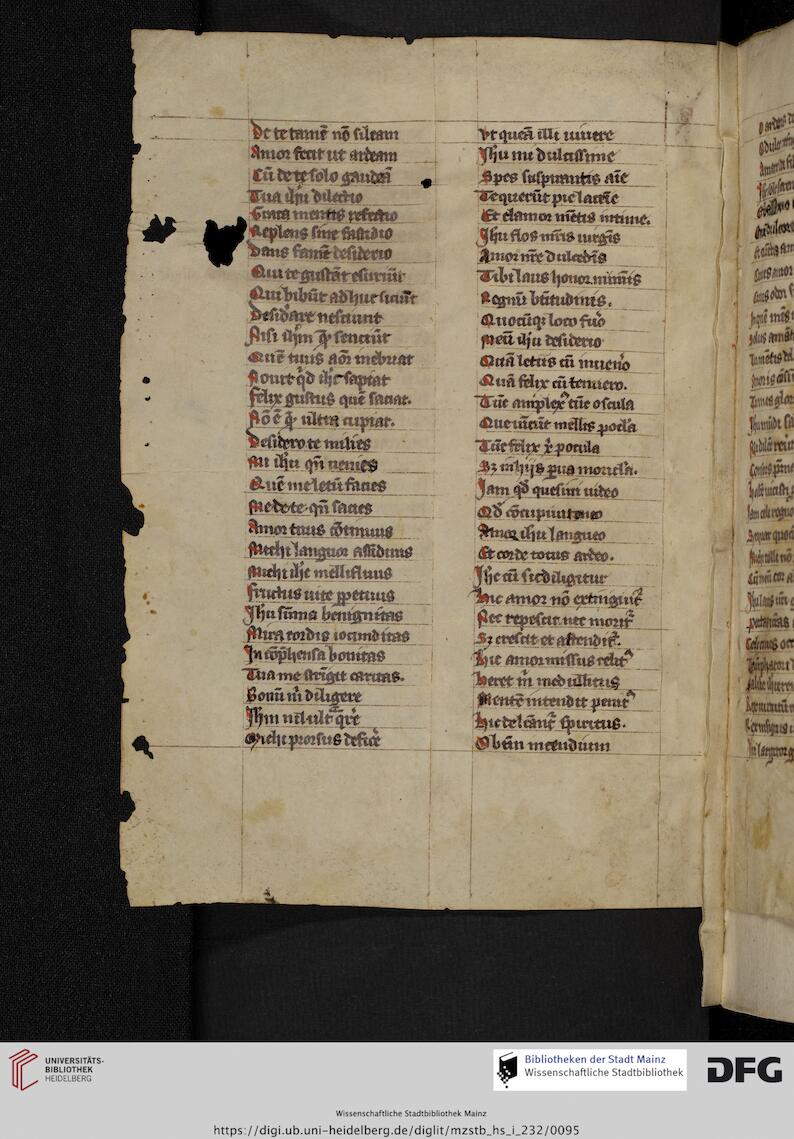 De te tamē nō sileam
Amor fecit ut ardeam
Cū de te solo gaudeā
Tua ihu dilectio
Grata mentis refectio
Replens sine fastidio
Dans famē desiderio
Qui te gustāt esuriūt
Qui bibūt adhuc siciūt
Desid'are nesciunt
Nisi ihm̄ quē senciūt
Quē tuus aōr inebriat
Nouit qͥd ihc sapiat
Felix gustus quē saciat.
Nō ē qͥ ultra cupiat.
Desidero te milies
Mi ihu qn̄ uenies
Quē me letū facies
Me de te qn̄ sacies
Amor tuus cōtinuus
Michi languor assiduus
Michi ihc mellifluus
Fructus uite ꝑpetuus
Ihu sūma benignitas
Mira cordis iocunditas
In cōp̄hensa bonitas
Tua me strīgit caritas.
Bonū m̄ diligere
Ihm̄ nil ult͛ q̄re
Michi prorsus defic̄e
Vt queā illi uiuere
Ihu mi dulcissime
Spes suspirantis aīe
Te querūt pie lac̄me
Et clamor mētis intime.
Ihu flos mr̄is uirgīs
Amor nr̄e dulcedīs
Tibi laus honor nūmīs
Regnū bt̄itudinis.
Quocūqꝫ loco fu'o
Meū ihu desiderio
Quā letus cū inuen'o
Quā felix cū tenuero.
Tūc amplexꝰ tūc oscula
Que uīcūt mellis pocla
Tūc felix x̄ı copula
Sꝫ in hijs ꝑua morula.
Iam qd̓ quesiui uideo
Qd̓ cōcupiui teneo
Amore ihu langueo
Et corde totus ardeo.
Ihc cū sic diligitur
Hic amor nō extinguit᷑
Nec tepescit nec morit᷑
Sꝫ crescit et accendit᷑.
Hic amor missus celitꝰ
Heret m̄ medullitus
Mentē incendit penitꝰ
Hic delc̄āt᷑ spiritus.
O btm̄ incendium
UNIVERSITÄTS-
BIBLIOTHEK
HEIDELBERG
Bibliotheken der Stadt Mainz
Wissenschaftliche Stadtbibliothek
DFG
Wissenschaftliche Stadtbibliothek Mainz
https://digi.ub.uni-heidelberg.de/diglit/mzstb_hs_i_232/0095